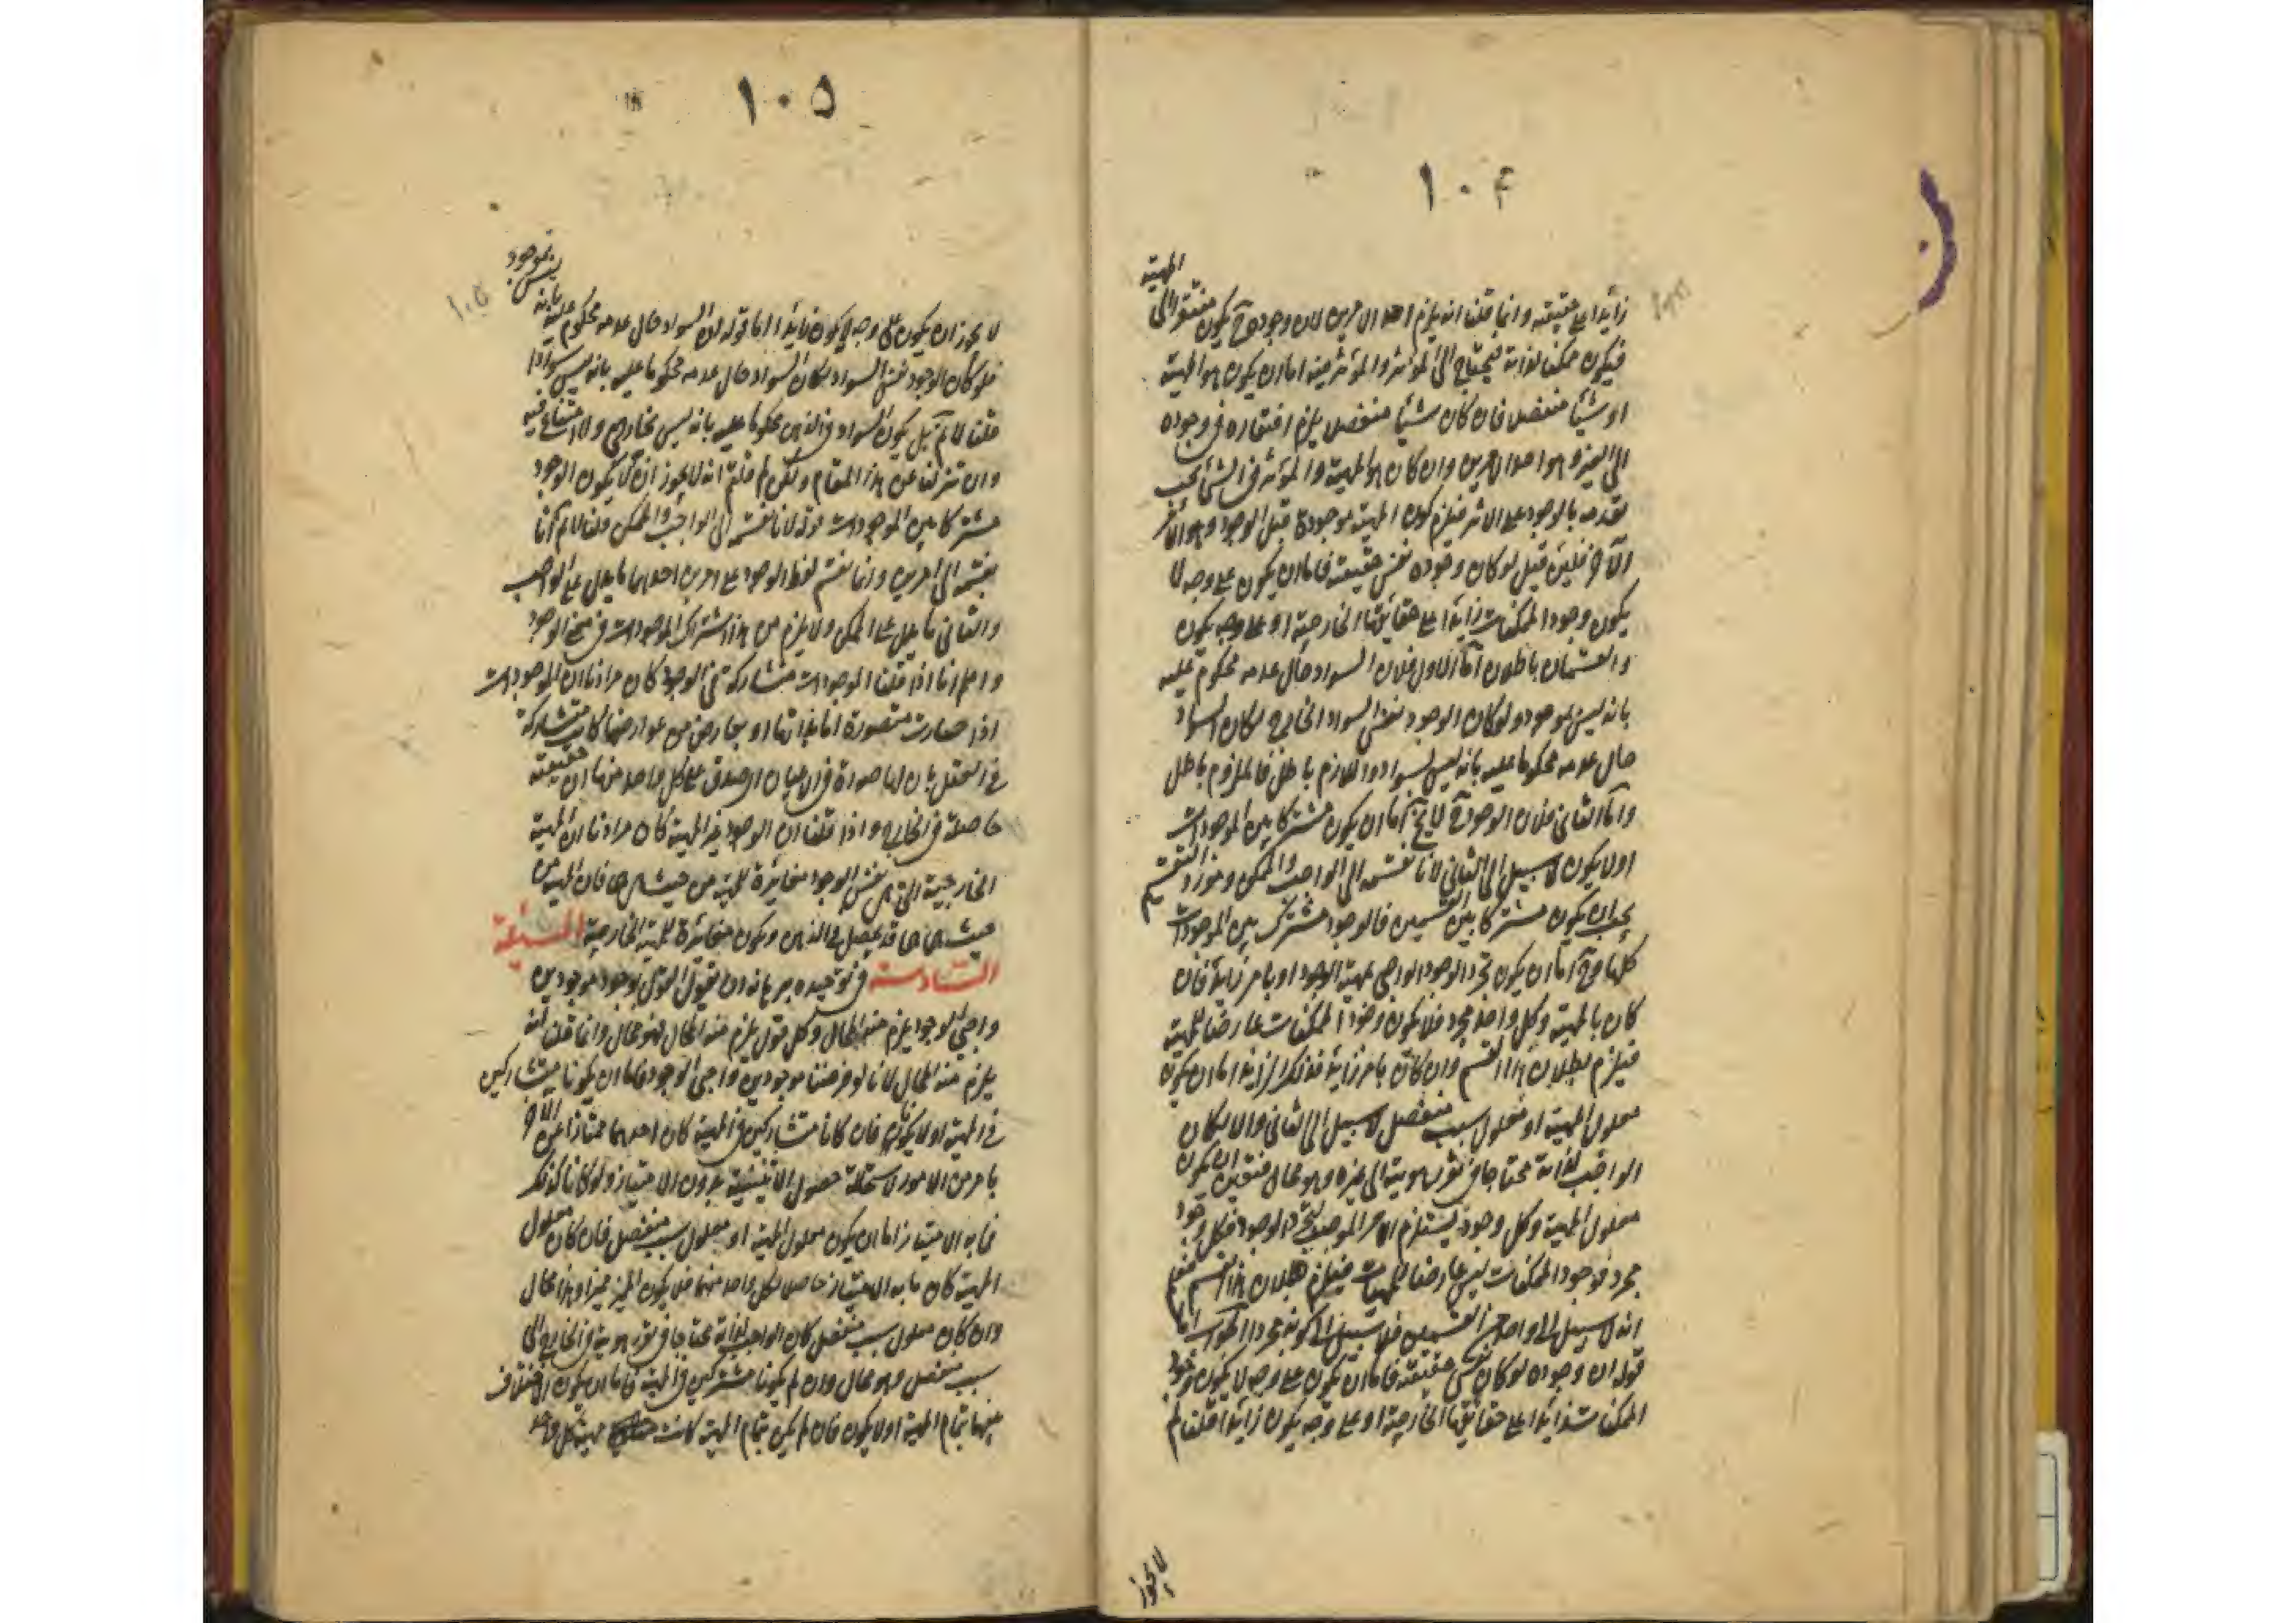 ١٠٤
زايدا على حقيقته وانما قلنا انه يلزم احد الامرين لان وجوده ح يكون مفتقرا الى المهية
فيكون ممكنا لذاته فيحتاج الى المؤثر والمؤثر فيه اما ان يكون هو المهية
او شيئا منفصلا فان كان شيئا منفصلا يلزم افتقاره في وجوده
الى الغير وهو احد الامرين وان كان هو المهية والمؤثر في الشئ يجب
تقدمه بالوجود على الاثر فيلزم كون المهية موجودة قبل الوجود وهو الامر
الآخر فلئن قيل لو كان وجوده نفس حقيقته فاما ان يكون على وجه لا
يكون وجود الممكنات زايدا على حقايقها الخارجية او على وجه يكون
والقسمان باطلان اما الاول فلان السواد حال عدمه محكوم عليه
بانه ليس بموجود ولو كان الوجود نفس السواد الخارجى لكان السواد
حال عدمه محكوما عليه بانه ليس بسواد واللازم باطل فالملزوم باطل
واما الثانى فلان الوجود ح لا يخ اما ان يكون مشتركا بين الموجودات
او لا يكون لا سبيل الى الثانى لانا نقسمه الى الواجب والممكن ومورد التقسيم
يجب ان يكون مشتركا بين القسمين فالوجود مشترك بين الموجودات
كلها وح اما ان يكون تجرد الوجود الواجبى لمهية الوجود او بامر زايد فان
كان بالمهية وكل واحد مجرد فلا يكون وجود الممكنات عارضا للمهية
فيلزم بطلان هذا القسم وان كان بامر زايد فذلك الزايد اما ان يكون
معلول المهية او معلول سبب منفصل لا سبيل الى الثانى والا لكان
الواجب لذاته محتاجا في تقرر هويته الى غيره وهو محال فتعين ان يكون
معلول المهية وكل وجود يستلزم الامر الموجب لتجرد الوجود فكل وجود
مجرد فوجود الممكنات ليس عارضا للمهيات فيلزم بطلان هذا القسم فعلم
انه لا سبيل الى واحد من القسمين فلا سبيل الى كونه مجردا الجواب اما
قوله ان وجوده لو كان نفس حقيقته فاما ان يكون على وجه لا يكون وجود
الممكنات زايدا على حقايقها الخارجية او على وجه يكون زايدا قلنا لم
لا يجوز
١٠٥
لا يجوز ان يكون على وجه لا يكون زايدا اما قوله لان السواد حال عدمه محكوم عليه بانه ليس بموجود
فلو كان الوجود نفس السواد لكان السواد حال عدمه محكوما عليه بانه ليس سوادا
قلنا لا نم بل يكون السواد في الذهن محكوما عليه بانه ليس بخارجى ولا امتناع فيه
وان تنزلنا عن هذا المقام ولكن لم قلتم انه لا يجوز ان لا يكون الوجود
مشتركا بين الموجودات قوله لانا نقسمه الى الواجب والممكن قلنا لا نم انا
نقسمه الى امرين وانما نقسم لفظ الوجود على امرين احدهما ما يطلق على الواجب
والثانى ما يطلق على الممكن ولا يلزم من هذا اشتراك الموجودات في معنى الوجود
واعلم انا اذا قلنا الموجودات متشاركة في الوجود كان مرادنا ان الموجودات
اذا صارت متصورة اما بذاتها او بعارض من عوارضها كانت متشاركة
في العقل بان لها صورة في الاعيان او صدق على كل واحد منها ان حقيقته
حاصلة في الخارج واذا قلنا ان الوجود غير المهية كان مرادنا ان المهية
الخارجية التى هى نفس الوجود مغايرة للمهية من حيث هى هى فان المهية من
حيث هى هى قد تحصل في الذهن وتكون مغايرة للمهية الخارجية المسئلة
السادسة في توحيده برهانه ان نقول القول بوجود موجودين
واجبى الوجود يلزم منه المحال وكل قول يلزم منه المحال فهو محال وانما قلنا انه
يلزم منه المحال لانا لو فرضنا موجودين واجبى الوجود فاما ان يكونا متشاركين
في المهية او لا يكونا فان كانا متشاركين في المهية كان احدهما ممتازا عن الآخر
بامر من الامور لاستحالة حصول الاثنينية بدون الامتياز ولو كانا كذلك
فما به الامتياز اما ان يكون معلول المهية او معلول سبب منفصل فان كان معلول
المهية كان ما به الامتياز حاصلا لكل واحد منهما فلا يكون المميز مميزا وهذا محال
وان كان معلول سبب منفصل كان الواجب لذاته محتاجا في تقرر هويته في الخارج الى
سبب منفصل وهو محال وان لم يكونا مشتركين في المهية فاما ان يكون الاختلاف
بينهما بتمام المهية او لا يكون فان لم يكن بتمام المهية كانت مهية كل واحد